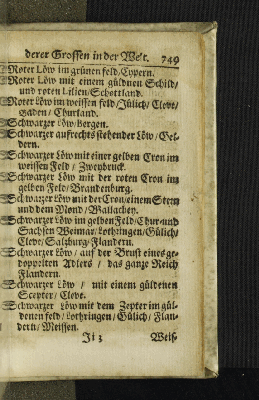 derer Grossen in der Welt. 749
Roter Löw im grünen feld/Cypern.
Roter Löw mit einem güldnen Schild/
und roten Lilien/Schottland.
Roter Löw im weissen feld/Jülich/Cleve/
Baden/Churland.
Schwarzer Löw/Bergen.
Schwarzer aufrechts stehender Löw/Gel-
dern.
Schwarzer Löw mit einer gelben Cron im
weissen Feld/Zweybruck.
Schwarzer Löw mit der roten Cron im
gelben Feld/Brandenburg.
Schwarzer Löw mit der Cron/einem Stern
und dem Mond/Wallachey.
Schwarzer Löw im gelben Feld/Chur-und
Sachsen Weimar/Lothringen/Gülich/
Cleve/Saltzburg/Flandern.
Schwarzer Löw/auf der Brust eines ge-
doppelten Adlers/das gantze Reich
Flandern.
Schwarzer Löw/mit einem güldenen
Scepter/Cleve.
Schwarzer Löw mit dem Zepter im gül-
denen feld/Lothringen/Gülich/Flan-
dern/Meissen.
Ji 3 Weis-